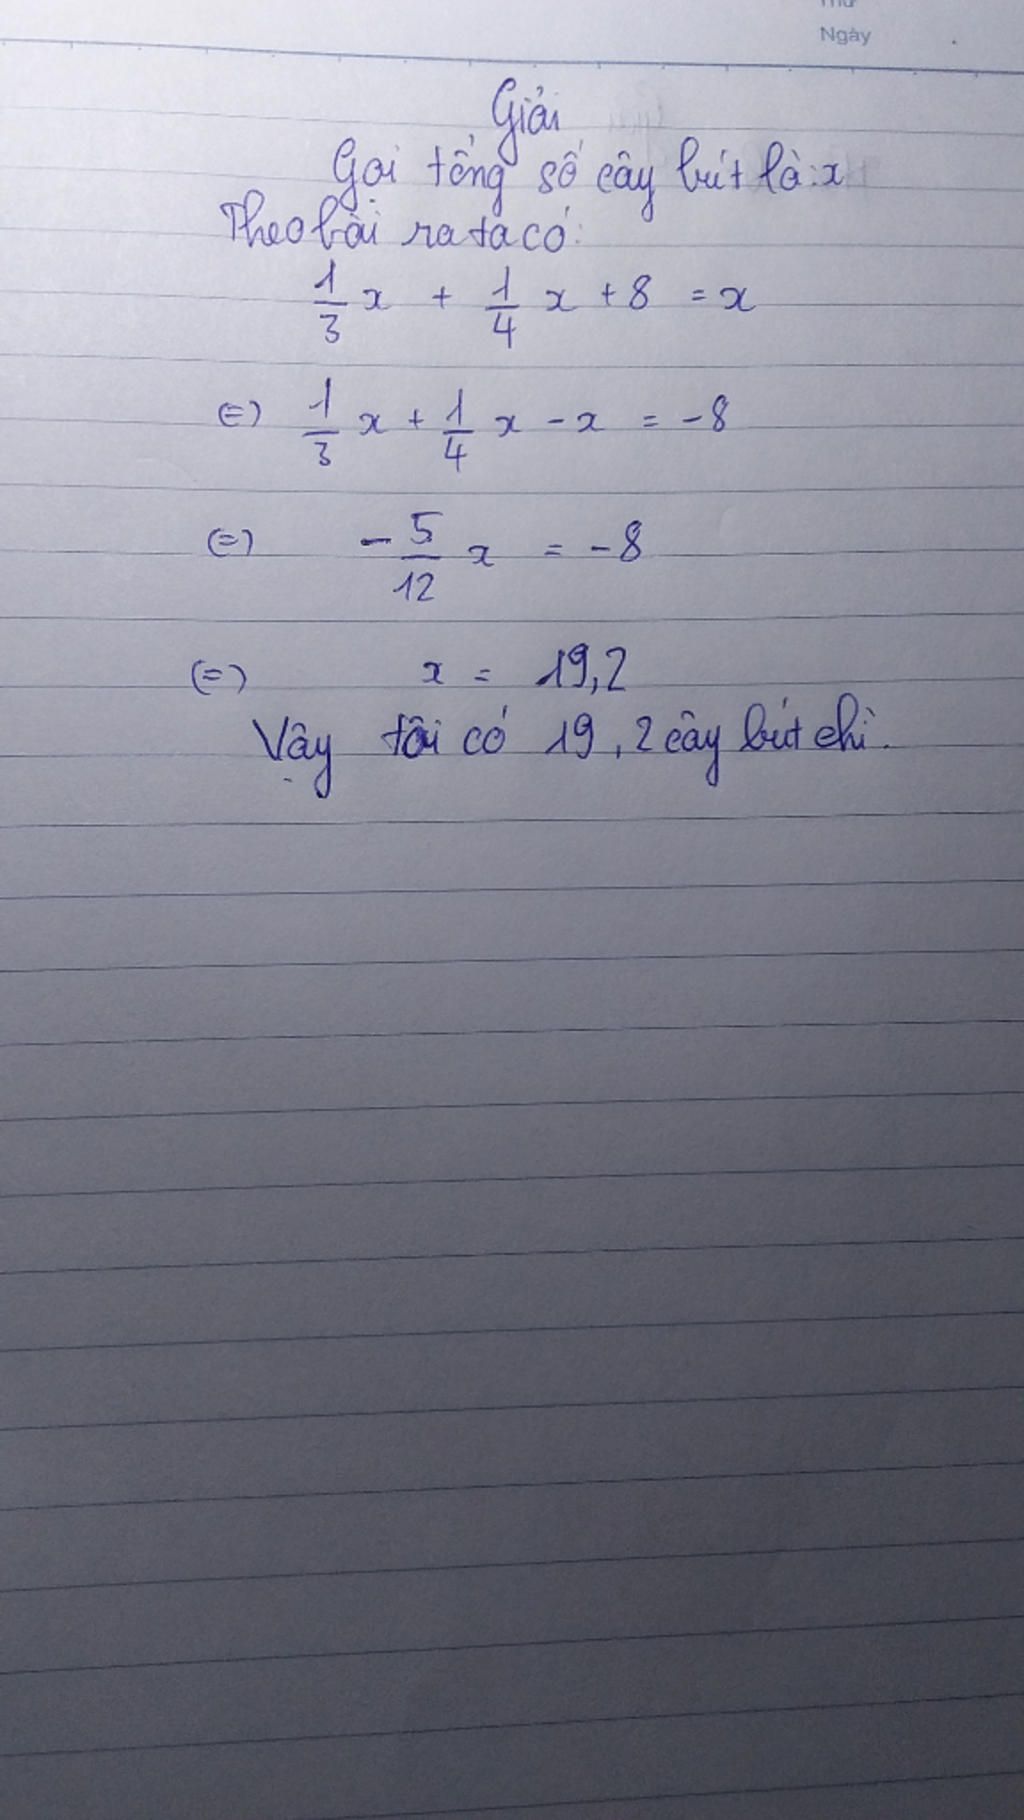 Thứ
Ngày
Giải
Gọi tổng số cây bút là: x
Theo bài ra ta có:
1/3 x + 1/4 x + 8 = x
(=) 1/3 x + 1/4 x - x = -8
(=) -5/12 x = -8
(=) x = 19,2
Vậy tôi có 19,2 cây bút chì.